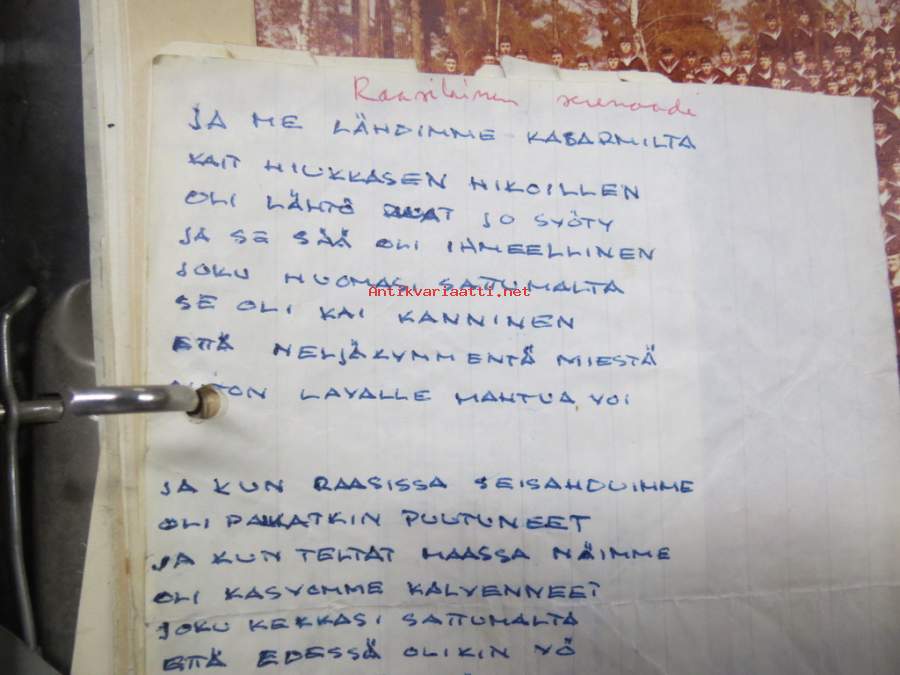 Raasilainen serenaadi
JA ME LÄHDIMME KASARMILTA
KAIT HIUKKASEN HIKOILLEN
OLI LÄHTÖ RUAT JO SYÖTY
JA SE SÄÄ OLI IHMEELLINEN
JOKU HUOMASI SATTUMALTA
Antikvariaatti.net
SE OLI KAI KANNINEN
ETTÄ NELJÄKYMMENTÄ MIESTÄ
LAVALLE MAHTUA VOI
JA KUN RAASISSA SEISAHDUIMME
OLI PAIKATKIN PUUTUNEET
JA KUN TELTAT MAASSA NÄIMME
OLI KASVOMME KALVENNEET
JOKU KEKKASI SATTUMALTA
ETTÄ EDESSÄ OLIKIN YÖ